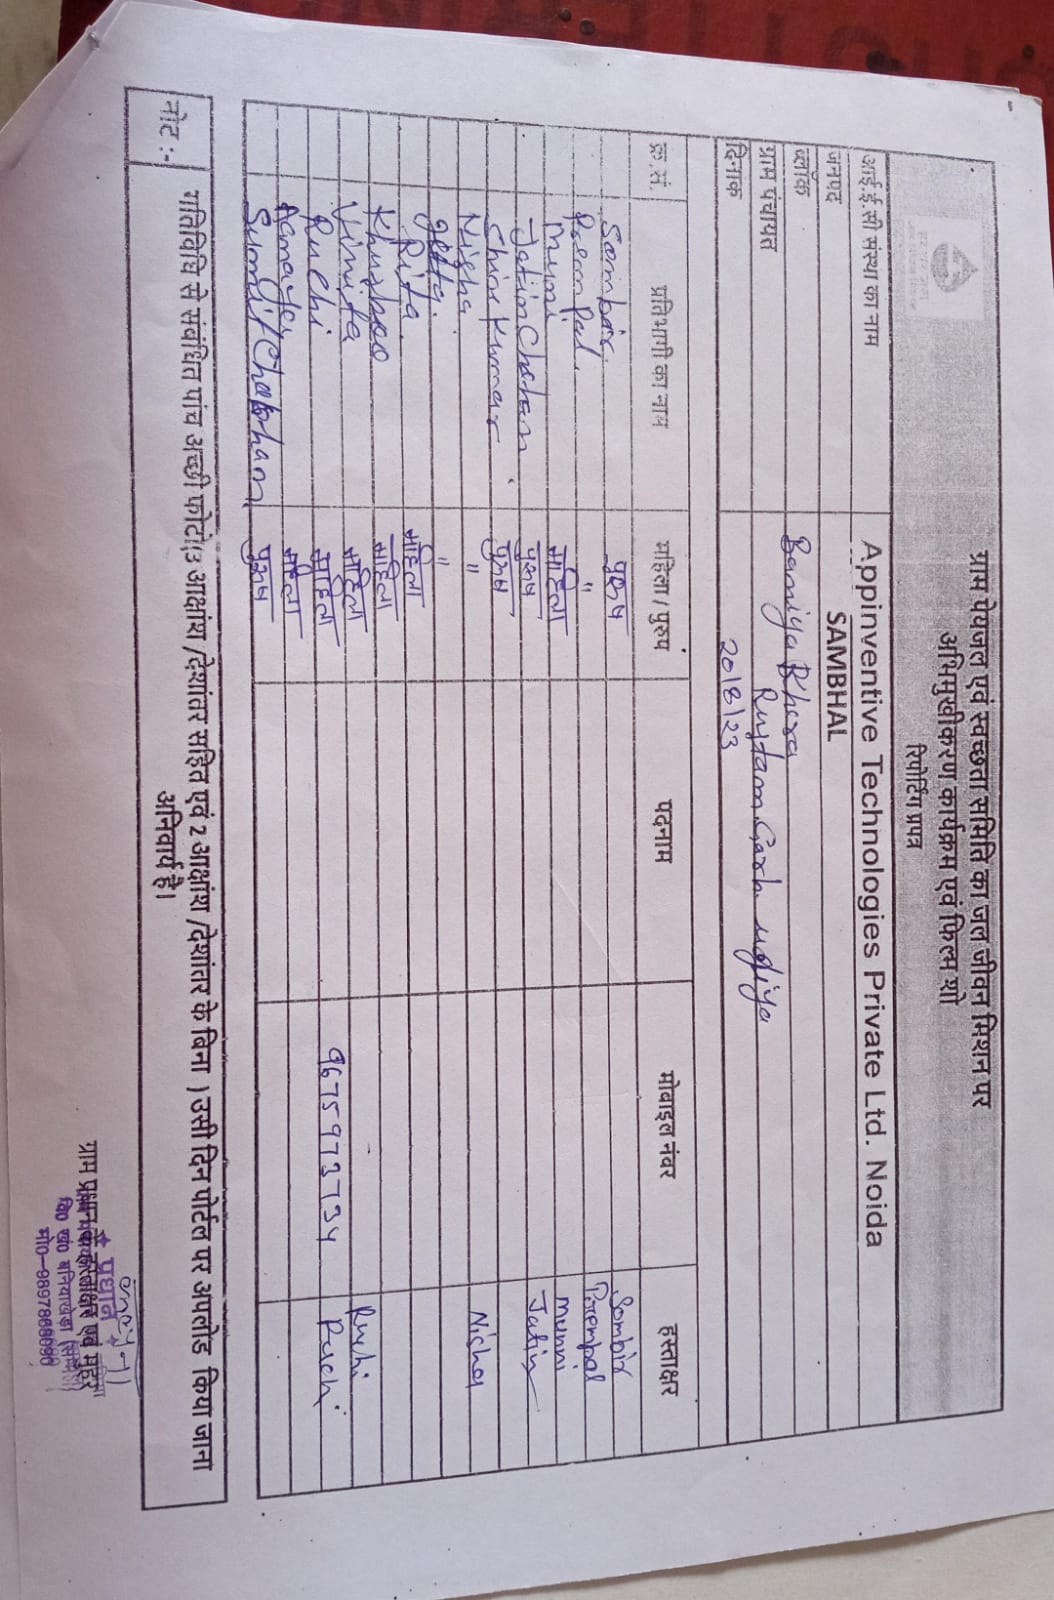 ग्राम पेयजल एवं स्वच्छता समिति का जल जीवन मिशन पर
अभिमुखीकरण कार्यक्रम एवं फिल्म शो
रिपोर्टिंग प्रपत्र
आई.ई.सी संस्था का नाम Appinventive Technologies Private Ltd. Noida
जनपद SAMBHAL
ब्लॉक Baniya Khera
ग्राम पंचायत
दिनांक 20/8/23
क्र.सं. प्रतिभागी का नाम महिला / पुरुष पदनाम मोबाइल नंबर हस्ताक्षर
Sombir पुरुष Sombir
"
Munni महिला Munni
Jatin Chohan पुरुष Jatin
Shiv Kumar पुरुष
Nisha "
geeta "
Rita महिला
Khushboo महिला
Vinita महिला Ruchi
Ruchi महिला 9675973734 Ruchi
महिला
Summit Chohhan पुरुष
नोट :- गतिविधि से संबंधित पांच अच्छी फोटो(3 आक्षांश /देशांतर सहित एवं 2 आक्षांश /देशांतर के बिना ) उसी दिन पोर्टल पर अपलोड किया जाना
अनिवार्य है।
प्रधान
ग्राम प्रधान के हस्ताक्षर एवं मुहर
वि0 खं0 बनियाखेड़ा
मो0-9897868090